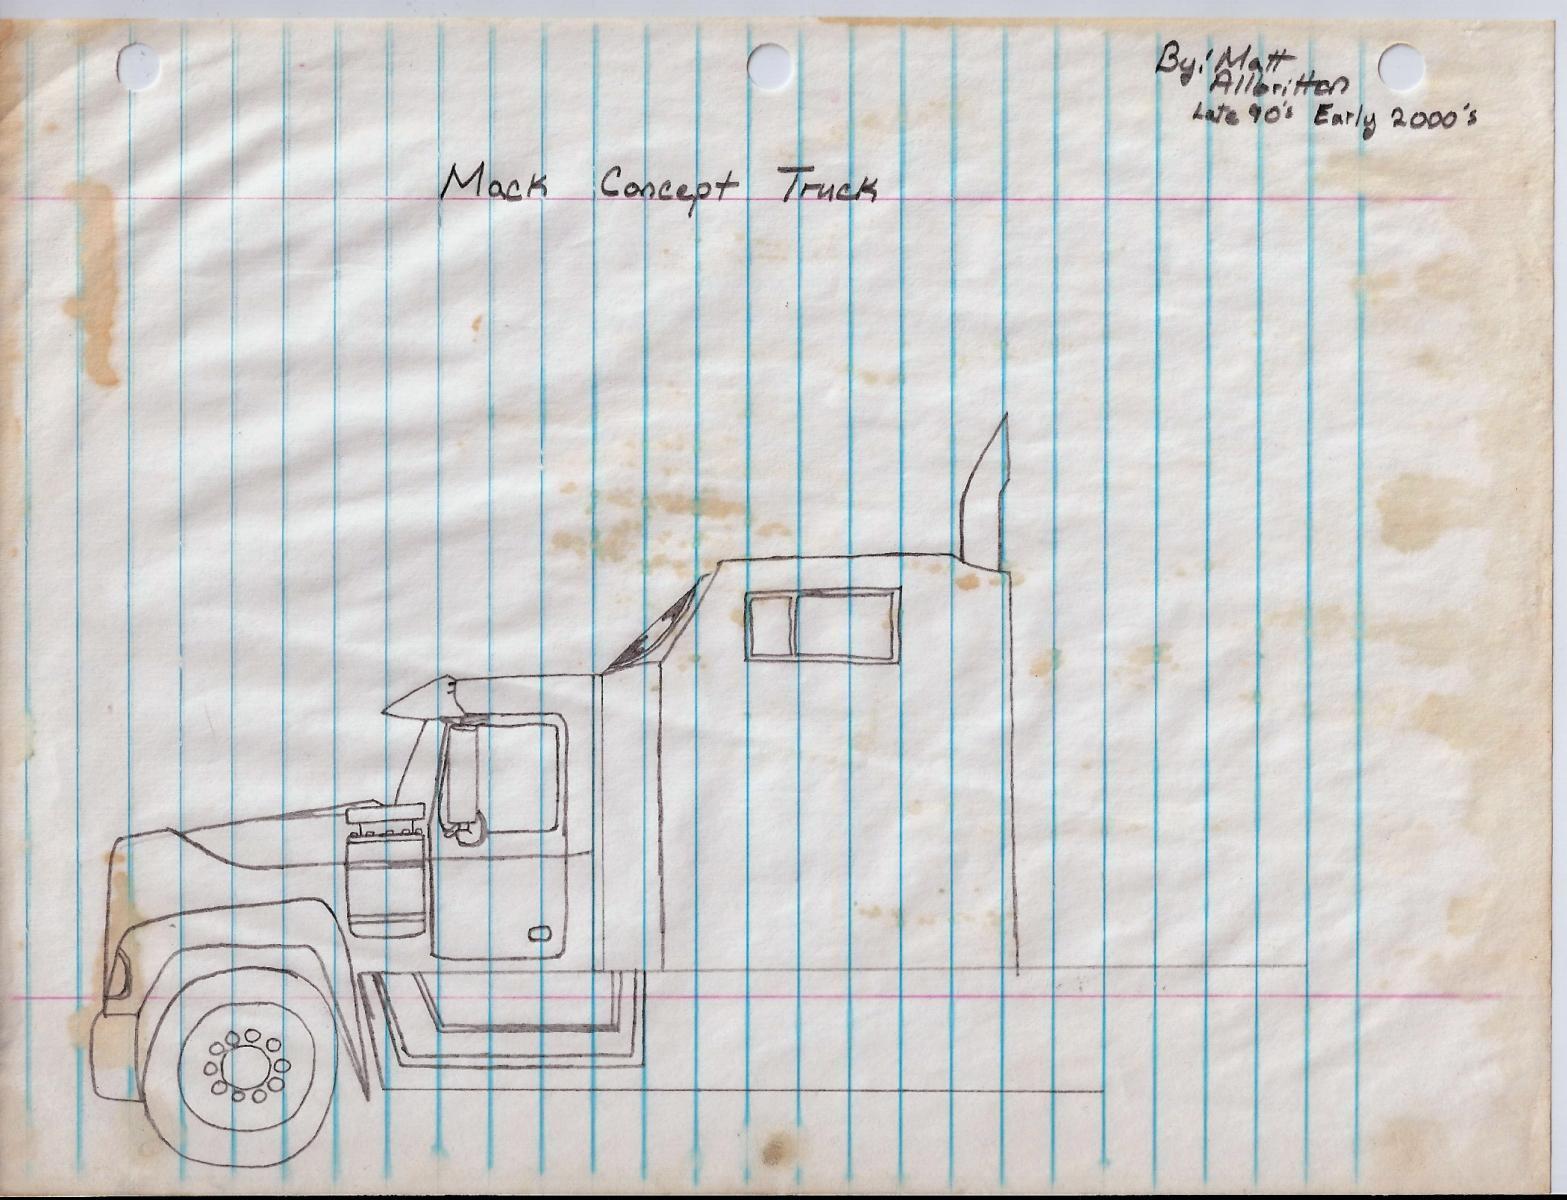 By: Matt
Allbritton
Late 90's Early 2000's
Mack Concept Truck